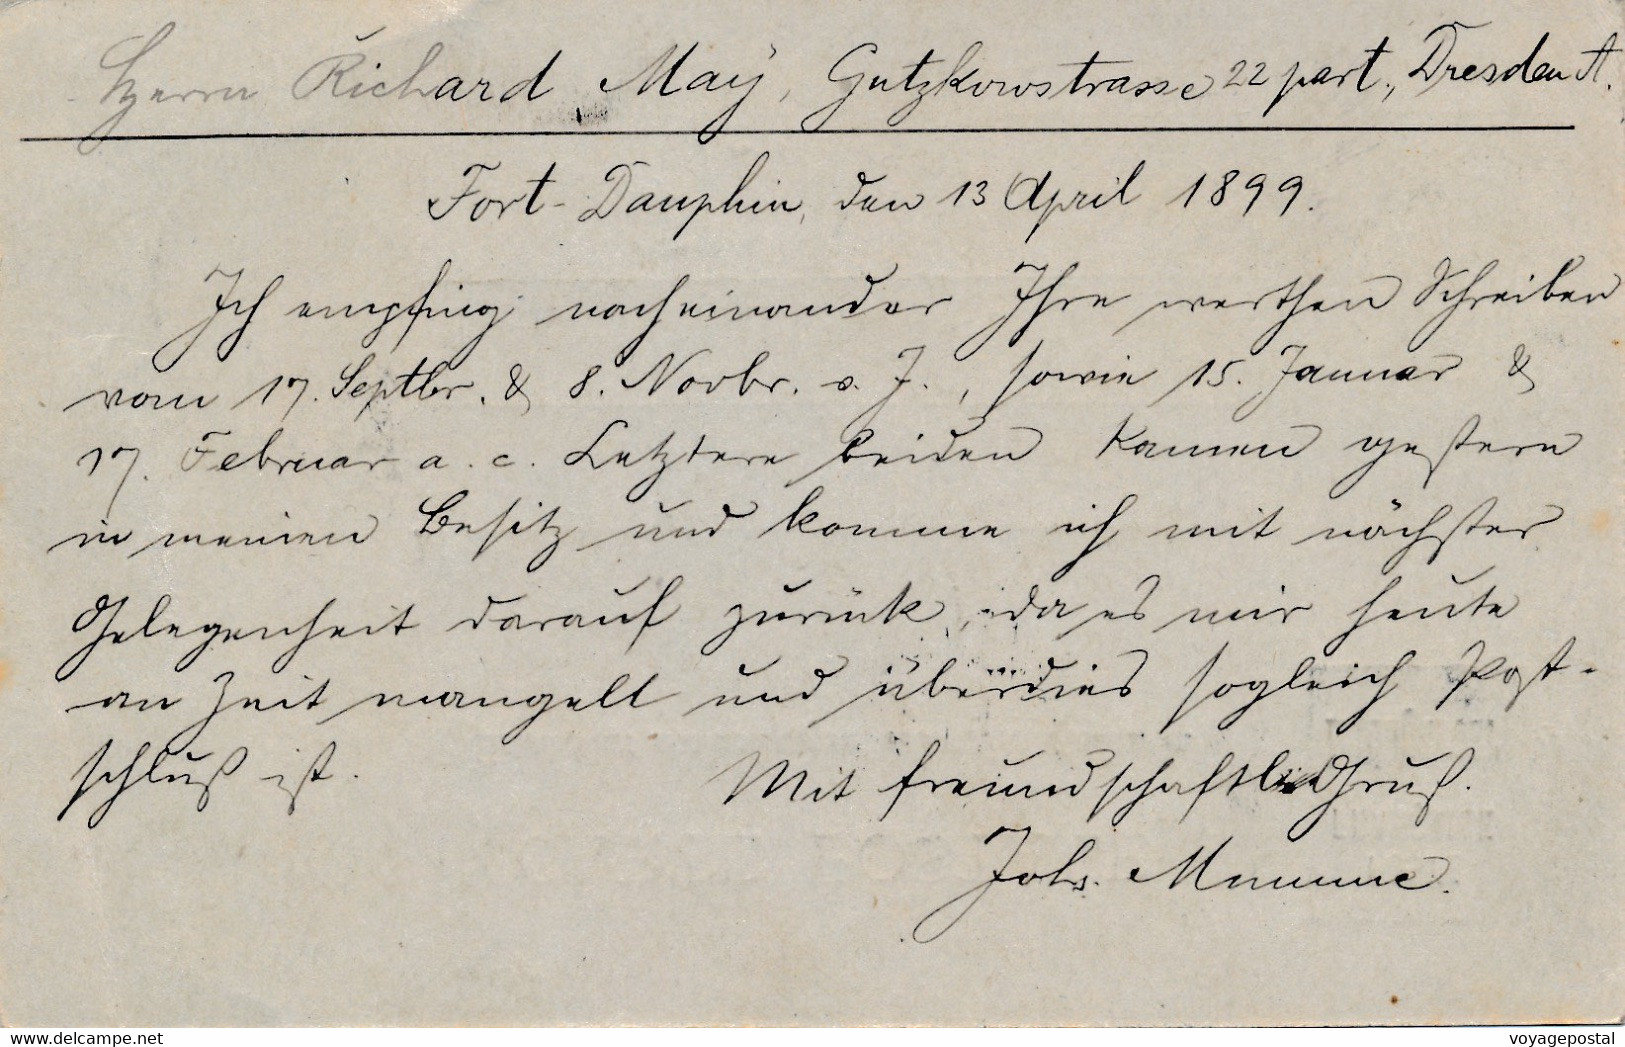 Herrn Richard Maÿ, Gutzkowstrasse 22 part., Dresden A.
Fort-Dauphin, den 13 April 1899.
Ich empfing nacheinander Ihre werthen Schreiben
vom 17. Septbr. & 8. Novbr. v. J., sowie 15. Januar &
17. Februar a. c. Letztere beiden kamen gestern
in meinen Besitz und komme ich mit nächster
Gelegenheit darauf zurück, da es mir heute
an Zeit mangelt und überdies sogleich Post-
schluß ist.
Mit freundschaftl. Gruß.
Johs. Mumme.
voyagepostal